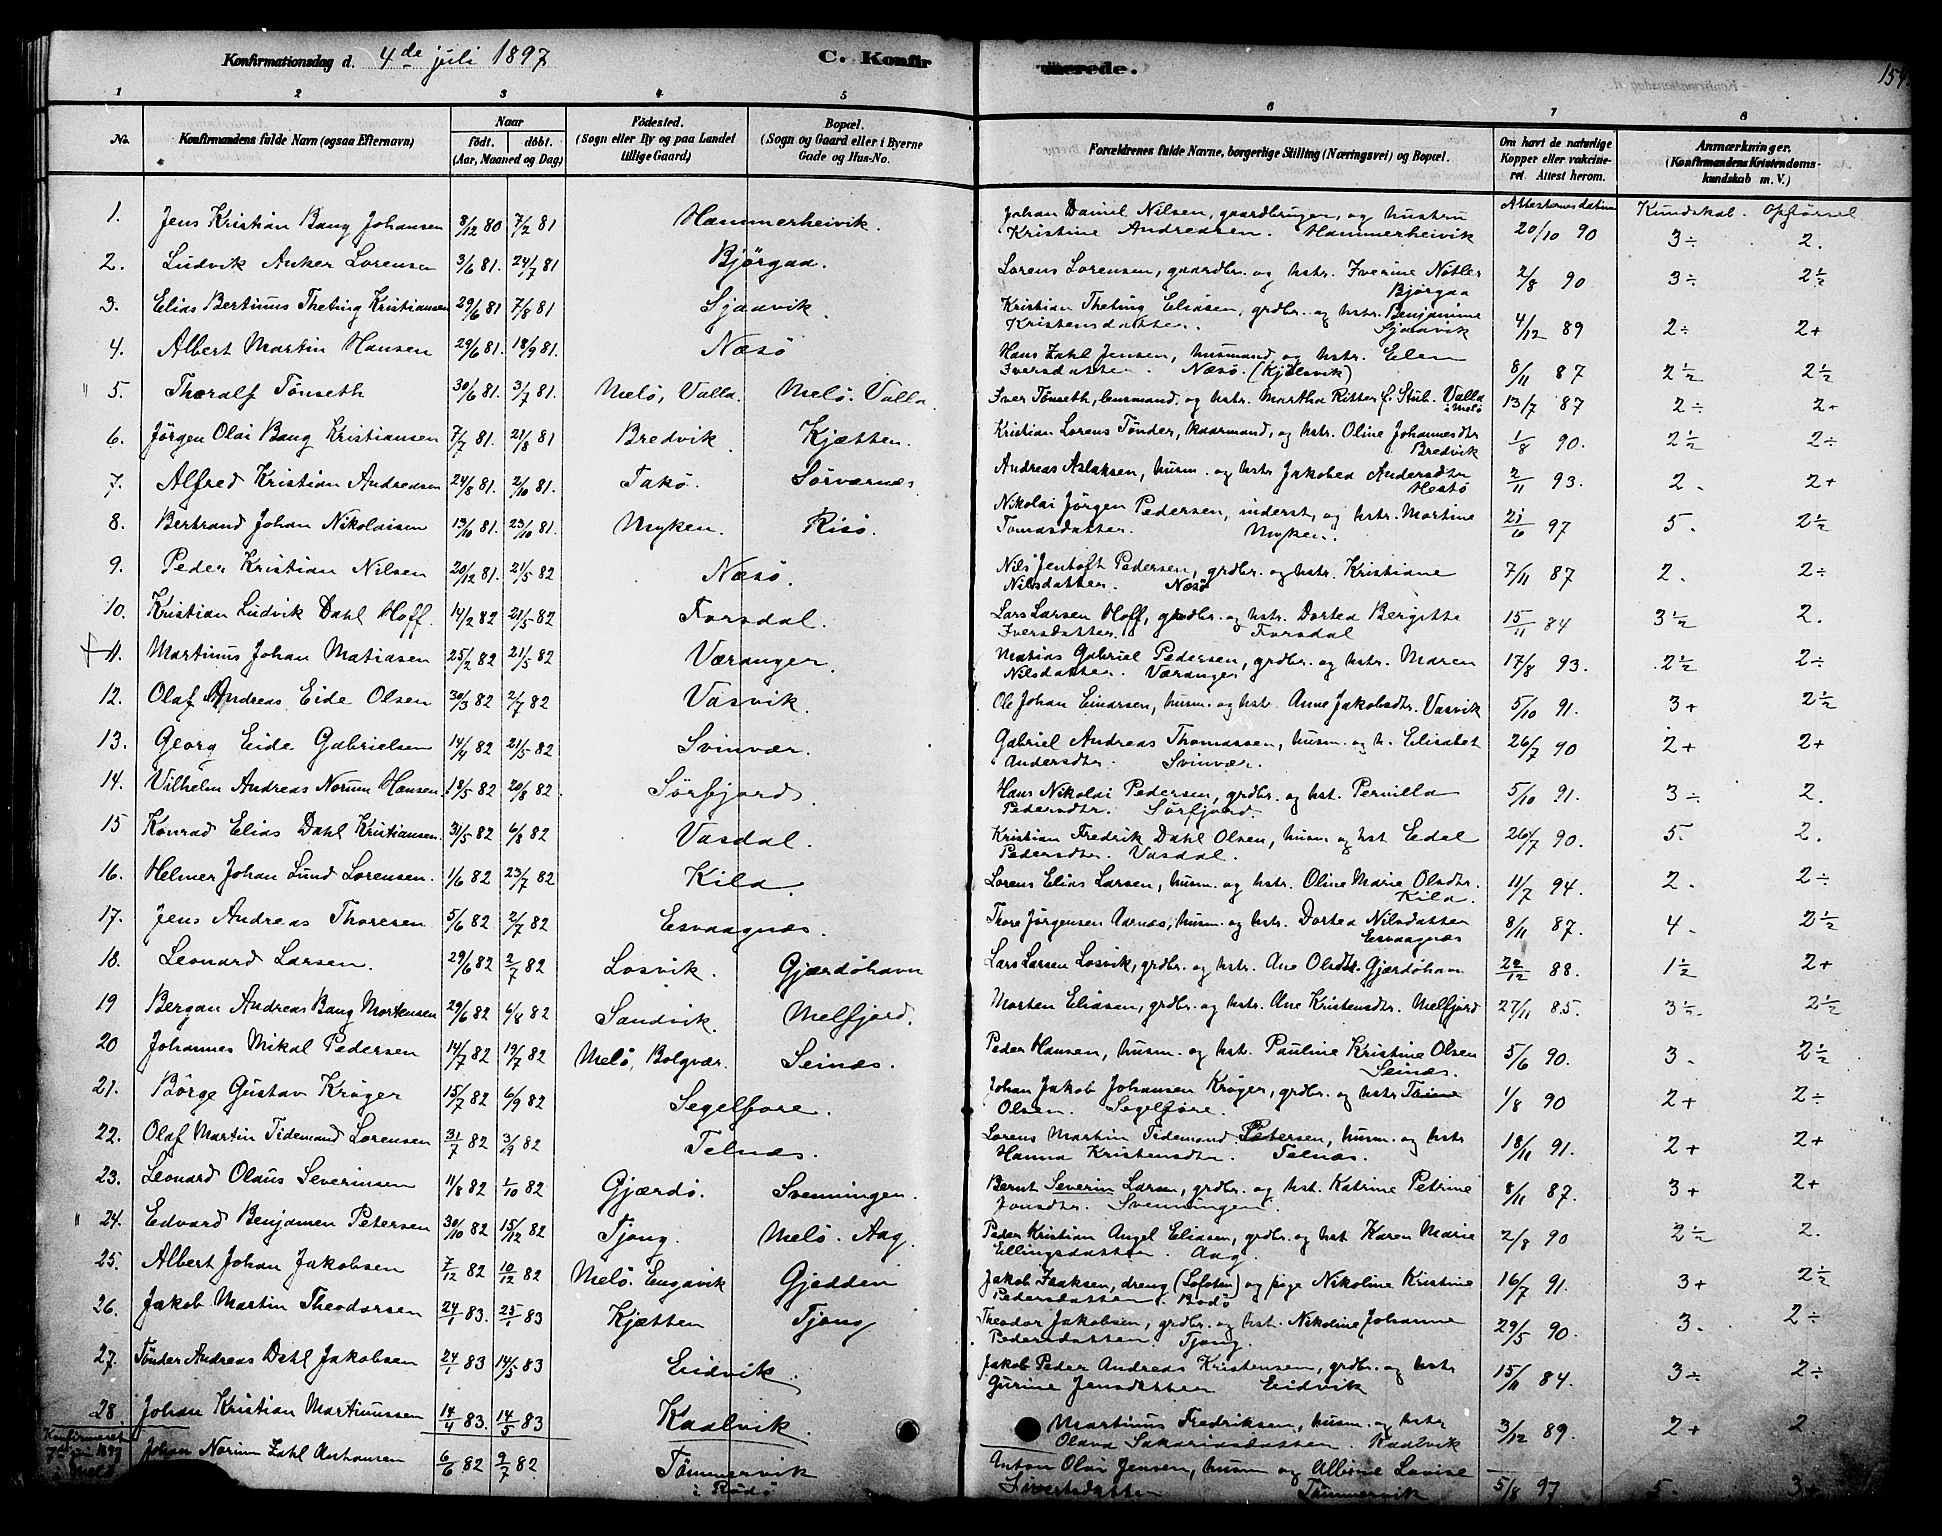 Konfirmationsdag d. 4de juli 1897 C. Konfirmerede. 154
1 2 3 4 5 6 7 8
No. Konfirmandens fulde Navn (ogsaa Efternavn) Naar født. døbt. (Aar, Maaned og Dag) Fødested. (Sogn eller By og paa Landet tillige Gaard) Bopæl. (Sogn og Gaard eller i Byerne Gade og Hus-No. Forældrenes fulde Navne, borgerlige Stilling (Næringsvei) og Bopæl. Om havt de naturlige Kopper eller vakcineret. Attest herom. Anmærkninger. (Konfirmandens Kristendomskundskab m. V.)
Attesternes datum Kundskab. Opførsel.
1. Jens Kristian Bang Johansen 8/12 80 7/2 81 Hammerheivik. Johan Daniel Nilsen, gaardbruger, og hustru
Kristine Andreasen. Hammerheivik 20/10 90 3÷ 2.
2. Ludvik Anker Lorensen 3/6 81. 24/7 81 Bjørgaa. Lorens Lorensen, gaardbr. og hstr. Iverine Nøtler
Bjørgaa 2/8 90 3÷ 2½
3. Elias Bertinus Thebing Kristiansen 29/6 81 7/8 81 Sjaavik. Kristian Thebing Eliasen, grdbr. og hstr. Benjamine
Kristensdatter. Sjaavik 4/12 89 2÷ 2+
4. Albert Martin Hansen 29/6 81. 18/9 81. Næsø Hans Zahl Jensen, husmand og hstr. Elen
Iversdatter. Næsø. (Kjølsvik) 8/11 87 2½ 2½
" 5. Thoralf Tønseth 30/6 81. 3/7 81 Melø, Valla. Melø. Valla. Iver Tønseth, lensmand, og hstr. Martha Ritter f. Stub. Valla
i Melø 13/7 87 2÷ 2+
6. Jørgen Olai Bang Kristiansen 7/7 81. 21/8 81 Bredvik Kjætten. Kristian Lorens Tønder, kaarmand, og hstr. Oline Johannesdtr
Bredvik 1/8 90. 2½ 2÷
7. Alfred Kristian Andreasen 24/8 81. 2/10 81. Takø. Sørværnes Andreas Aslaksen, husm. og hstr Jakobea Andersdtr
Hestø 2/11 93. 2. 2+
8. Bertrand Johan Nikolaisen 13/10 81. 23/10 81. Myken. Risø. Nikolai Jørgen Pedersen, inderst, og hstr. Martine
Tomasdatter. Myken. 21/6 97 5. 2½
9. Peder Kristian Nilsen 20/12 81. 21/5 82 Næsø. Nils Jentoft Pedersen, grdbr. og hstr. Kristiane
Nilsdatter. Næsø 7/11 87 2. 2÷
10. Kristian Ludvik Dahl Hoff. 14/2 82 21/5 82 Forsdal. Lars Larsen Hoff, grdbr. og hstr. Dortea Bergitte
Iversdatter. Forsdal 15/11 84 3½ 2.
11. Martinus Johan Matiasen 25/2 82 21/5 82 Væranger. Matias Gabriel Pedersen, grdbr. og hstr. Maren
Nilsdatter. Væranger 17/8 93. 2½ 2÷
12. Olaf Andreas Eide Olsen 30/3 82 2/7 82 Vasvik. Ole Johan Einarsen, husm. og hstr. Anne Jakobsdtr. Vasvik 5/10 91. 3+ 2½
13. Georg Eide Gabrielsen 14/4 82 21/5 82 Svinvær. Gabriel Andreas Thomassen, husm. og h. Elisabet
Andersdtr. Svinvær. 26/7 90 2+ 2+
14. Vilhelm Andreas Norum Hansen. 18/5 82 20/8 82. Sørfjord. Hans Nikolai Pedersen, grdbr. og hst. Pernilla
Pedersdtr. Sørfjord. 5/10 91. 3÷ 2.
15 Konrad Elias Dahl Kristiansen. 31/5 82 6/8 82 Vasdal. Kristian Fredrik Dahl Olsen, husm. og hst Edel
Pedersdtr. Vasdal. 26/7 90. 5. 2.
16. Helmer Johan Lund Lorensen. 1/6 82 23/7 82 Kila. Lorens Elias Larsen, husm. og hstr. Oline Marie Olsdtr.
Kila. 11/7 94. 2. 2÷
17. Jens Andreas Thoresen 5/6 82 2/7 82 Esvaagnæs. Thore Jørgensen Aarnes, husm. og hstr. Dortea Nilsdatter
Esvaagnæs 8/11 87. 4. 2½
18. Leonard Larsen. 29/6 82 2/7 82 Losvik. Gjærdøhavn Lars Larsen Losvik, grdbr. og hstr. Ane Olsdtr. Gjærdøhavn 22/12 88. 1½ 2+
19 Bergan Andreas Bang Mortensen 29/6 82 6/8 82 Sandvik. Melfjord. Morten Eliasen, grdbr. og hstr. Ane Kristensdtr. Melfjord 27/11 85. 3½ 2½
20 Johannes Mikal Pedersen 14/7 82 19/7 82 Melø, Bolgvær. Seinæs. Peder Hansen, husm. og hstr. Pauline Kristine Olsen
Seinæs. 5/6 90. 3. 2½
21. Børge Gustav Krøger 15/7 82 6/9 82 Segelfore. Johan Jakob Johansen Krøger, grdbr. og hstr Trine
Olsen. Segelføre. 1/8 90 2+ 2÷
22. Olaf Martin Tidemand Lorensen 31/7 82 3/9 82 Telnæs. Lorens Martin Tidemand Petersen, husm. og hstr
Hanna Kristensdtr. Telnæs. 18/11 91. 2+ 2+
23. Leonard Olaus Severinsen 11/8 82 1/10 82 Gjærdø. Svenningen. Bernt Severin Larsen, grdbr. og hst. Katrine Petrine
Jonsdtr. Svenningen. 8/11 87. 3+ 2+
" 24. Edvard Benjamen Petersen 30/10 82 15/12 82 Tjong. Melø. Aag. Peder Kristian Angel Eliasen, grdbr. og hst Karen Marie
Ellingsdatter. Aag. 2/8 90 2½ 2.
25. Albert Johan Jakobsen 7/12 82 10/12 82 Melø. Engavik Gjedden Jakob Isaksen, dreng (Lofoten) og pige Nikoline Kristine
Pedersdatter. Bodø 16/7 91. 3+ 2½
26. Jakob Martin Theodorsen 24/1 83. 25/1 83 Kjætten Tjong Theodor Jakobsen, grdbr. og hst. Nikoline Johanne
Pedersdatter. Tjong. 29/5 90. 3. 2÷
27. Tønder Andreas Dahl Jakobsen 24/1 83 14/5 83 Eidvik. Jakob Peder Andreas Kristensen, grdbr. og hstr
Gurine Jensdatter Eidvik 15/11 84. 3÷ 2÷
28. Johan Kristian Martinussen 14/4 83. 14/5 83 Kaalvik. Martinus Fredriksen, husm. og hstr
Olava Sakariasdatter. Kaalvik 3/12 89. 2+ 2
Konfirmeret
Johan Norum Zahl Antonsen 6/6 82 9/7 82 Tømmervik
i Rødø Anton Olai Jensen, husm og Albine Lovise
Sivertsdatter Tømmervik 5/8 97 5. 3+